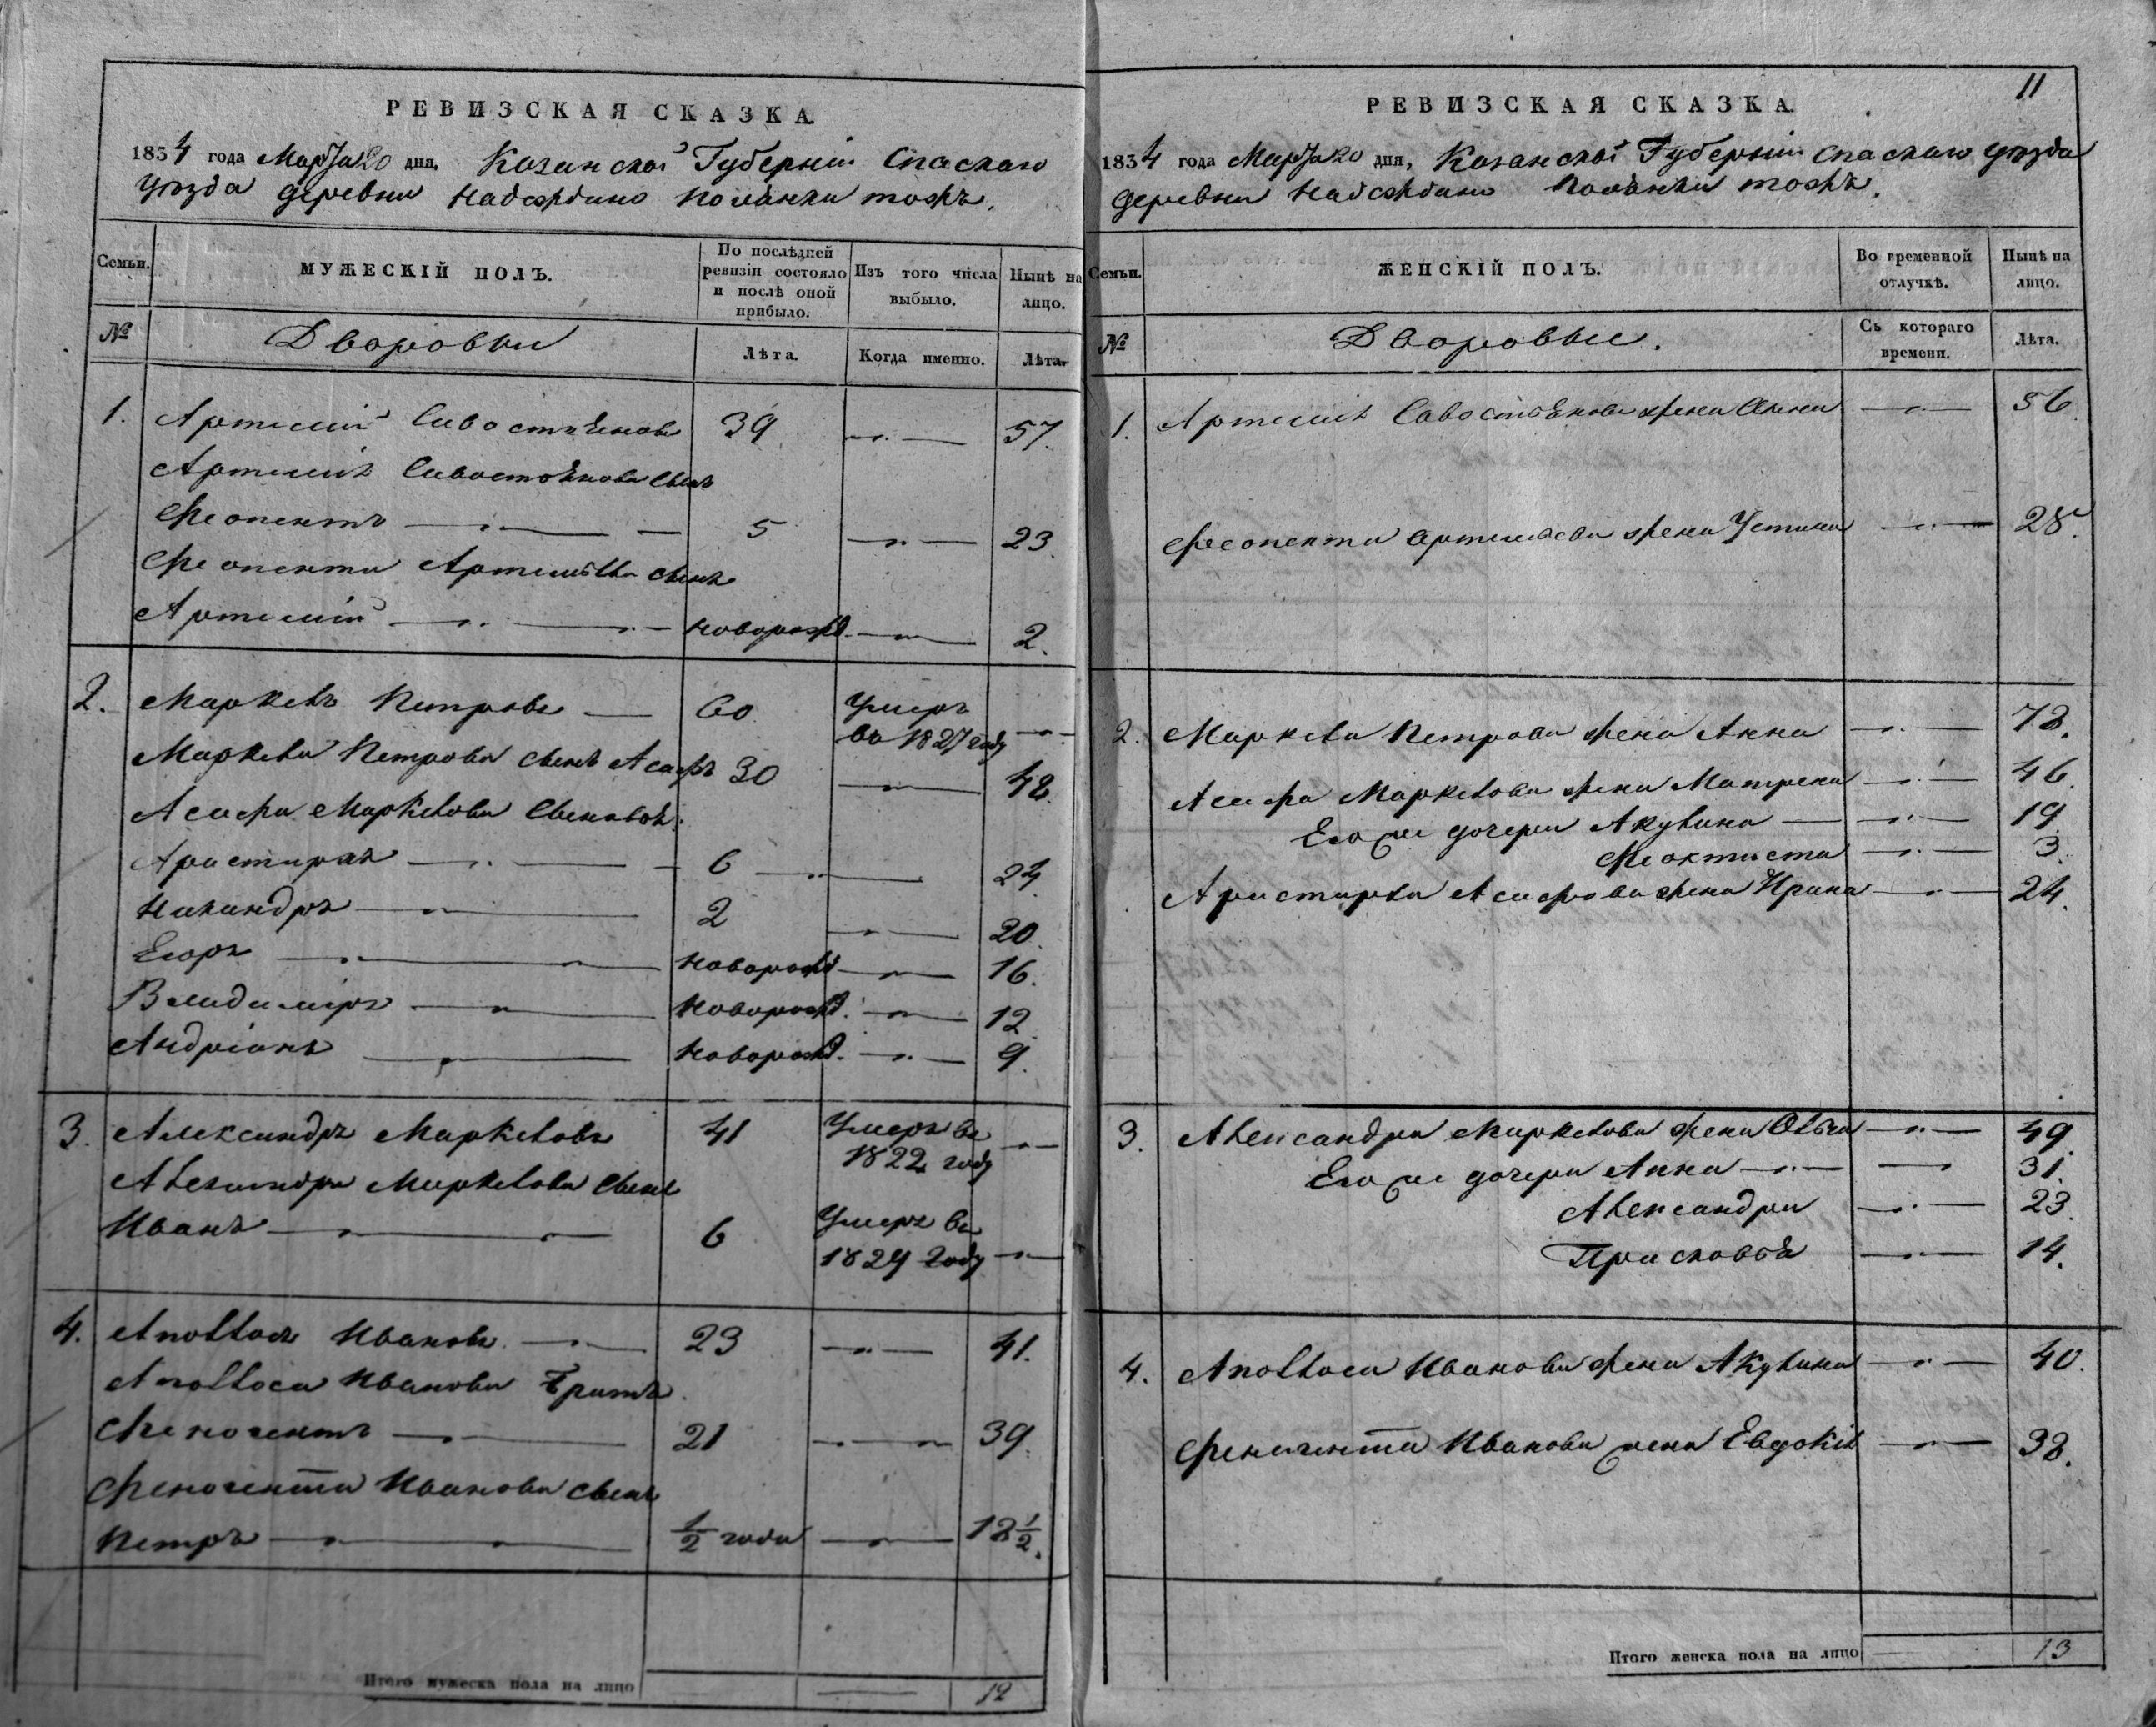 РЕВИЗСКАЯ СКАЗКА.
1834 года Марта 20 дня, Казанской Губерніи Спаскаго
уѣзда деревни Надеждино Полянки тожъ.
Семьи.
МУЖЕСКІЙ ПОЛЪ.
По послѣдней ревизіи состояло и послѣ оной прибыло.
Изъ того числа выбыло.
Нынѣ на лицо.
№
Дворовыи
Лѣта.
Когда именно.
Лѣта.
1. Артемій Савостьяновъ 39 57.
Артемія Савостьянова сынъ
Феопентъ 5 23.
Феопента Артемьева сынъ
Артемій новорожд. 2.
2. Маркелъ Петровъ 60 Умеръ
въ 1827 году
Маркела Петрова сынъ Асафъ 30 48.
Асафа Маркелова сыновья:
Аристархъ 6 24.
Никандръ 2 20.
Егоръ новорожд. 16.
Владиміръ новорожд. 12
Андріянъ новорожд. 9.
3. Александръ Маркеловъ 41 Умеръ въ
1822 году
Александра Маркелова сынъ
Иванъ 6 Умеръ въ
1829 году
4. Аполлосъ Ивановъ 23 41.
Аполлоса Иванова братъ
Феногентъ 21 39.
Феногента Иванова сынъ
Петръ 1/2 года 18 1/2.
Итого мужеска пола на лицо 12
11
РЕВИЗСКАЯ СКАЗКА.
1834 года Марта 20 дня, Казанской Губерніи Спаскаго уѣзда
деревни Надеждино Полянки тожъ.
Семьи.
ЖЕНСКІЙ ПОЛЪ.
Во временной отлучкѣ.
Нынѣ на лицо.
№
Дворовые.
Съ котораго времени.
Лѣта.
1. Артемія Савостьянова жена Анна 56
Феопента Артемьева жена Устинья 28.
2. Маркела Петрова жена Анна 78.
Асафа Маркелова жена Матрена 46.
Его же дочери Акулина 19
Феоктиста 3.
Аристарха Асафова жена Ирина 24.
3. Александра Маркелова жена Ольга 49
Его же дочери Анна 31.
Александра 23.
Прасковья 14.
4. Аполлоса Иванова жена Акулина 40.
Феногента Иванова жена Евдокія 38.
Итого женска пола на лицо 13